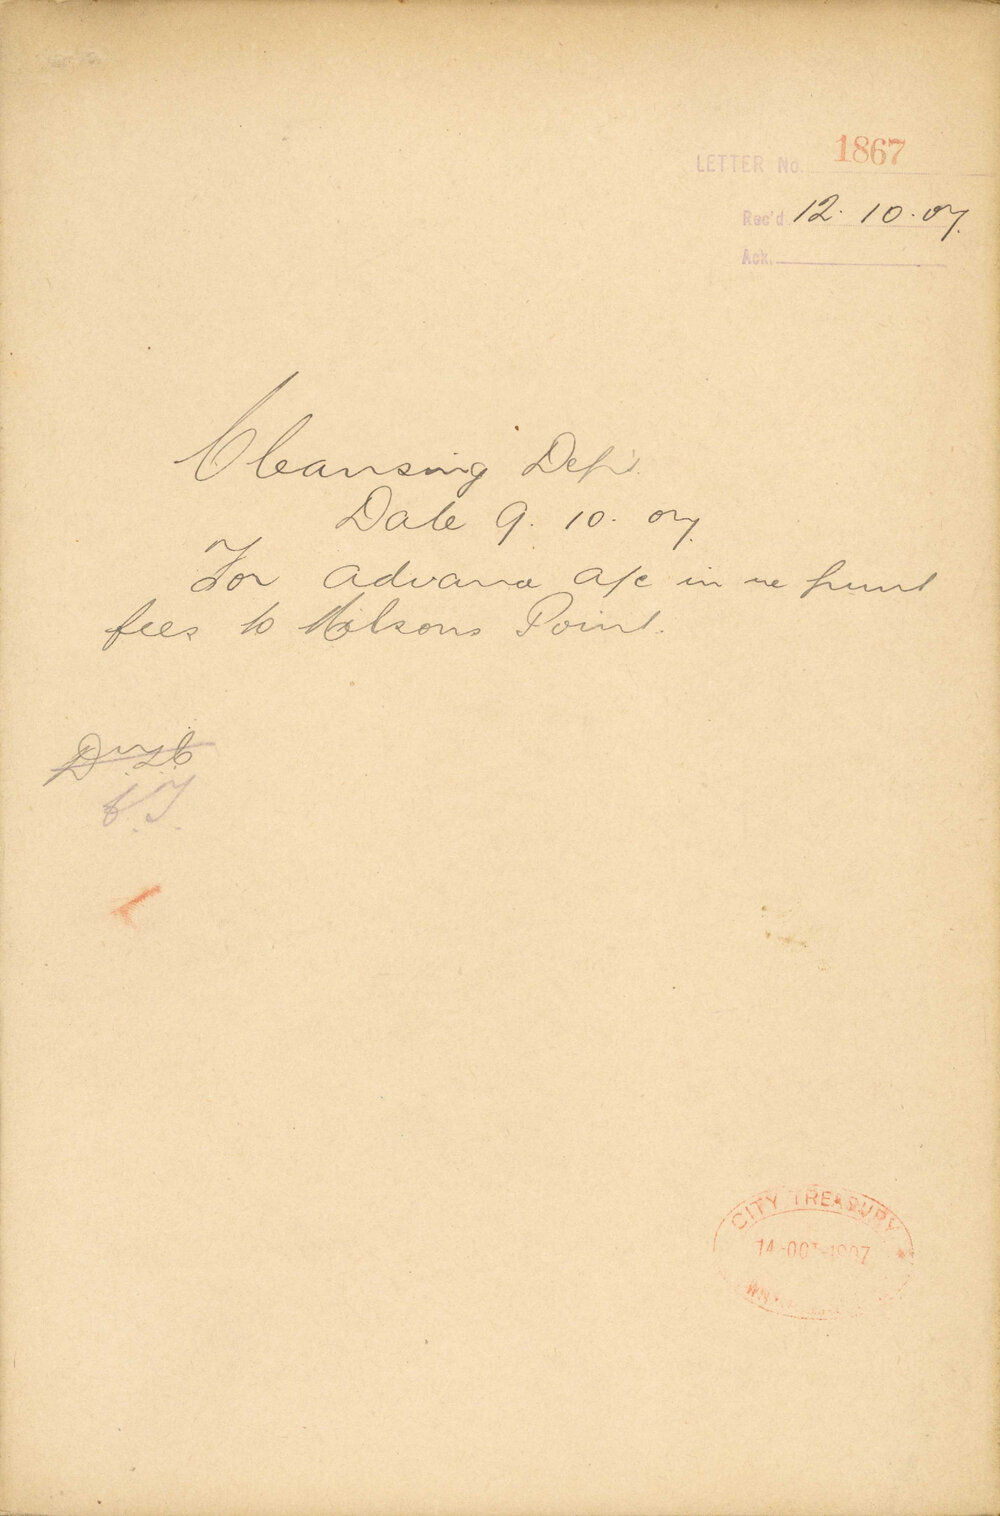 LETTER No. 1867
Rec'd 12. 10. 07.
Ack.
Cleansing Dept.
Date 9. 10. 07.
For advance a/c in re punt
fees to Milsons Point.
C.T.
CITY TREASURY
14-OCT-1907